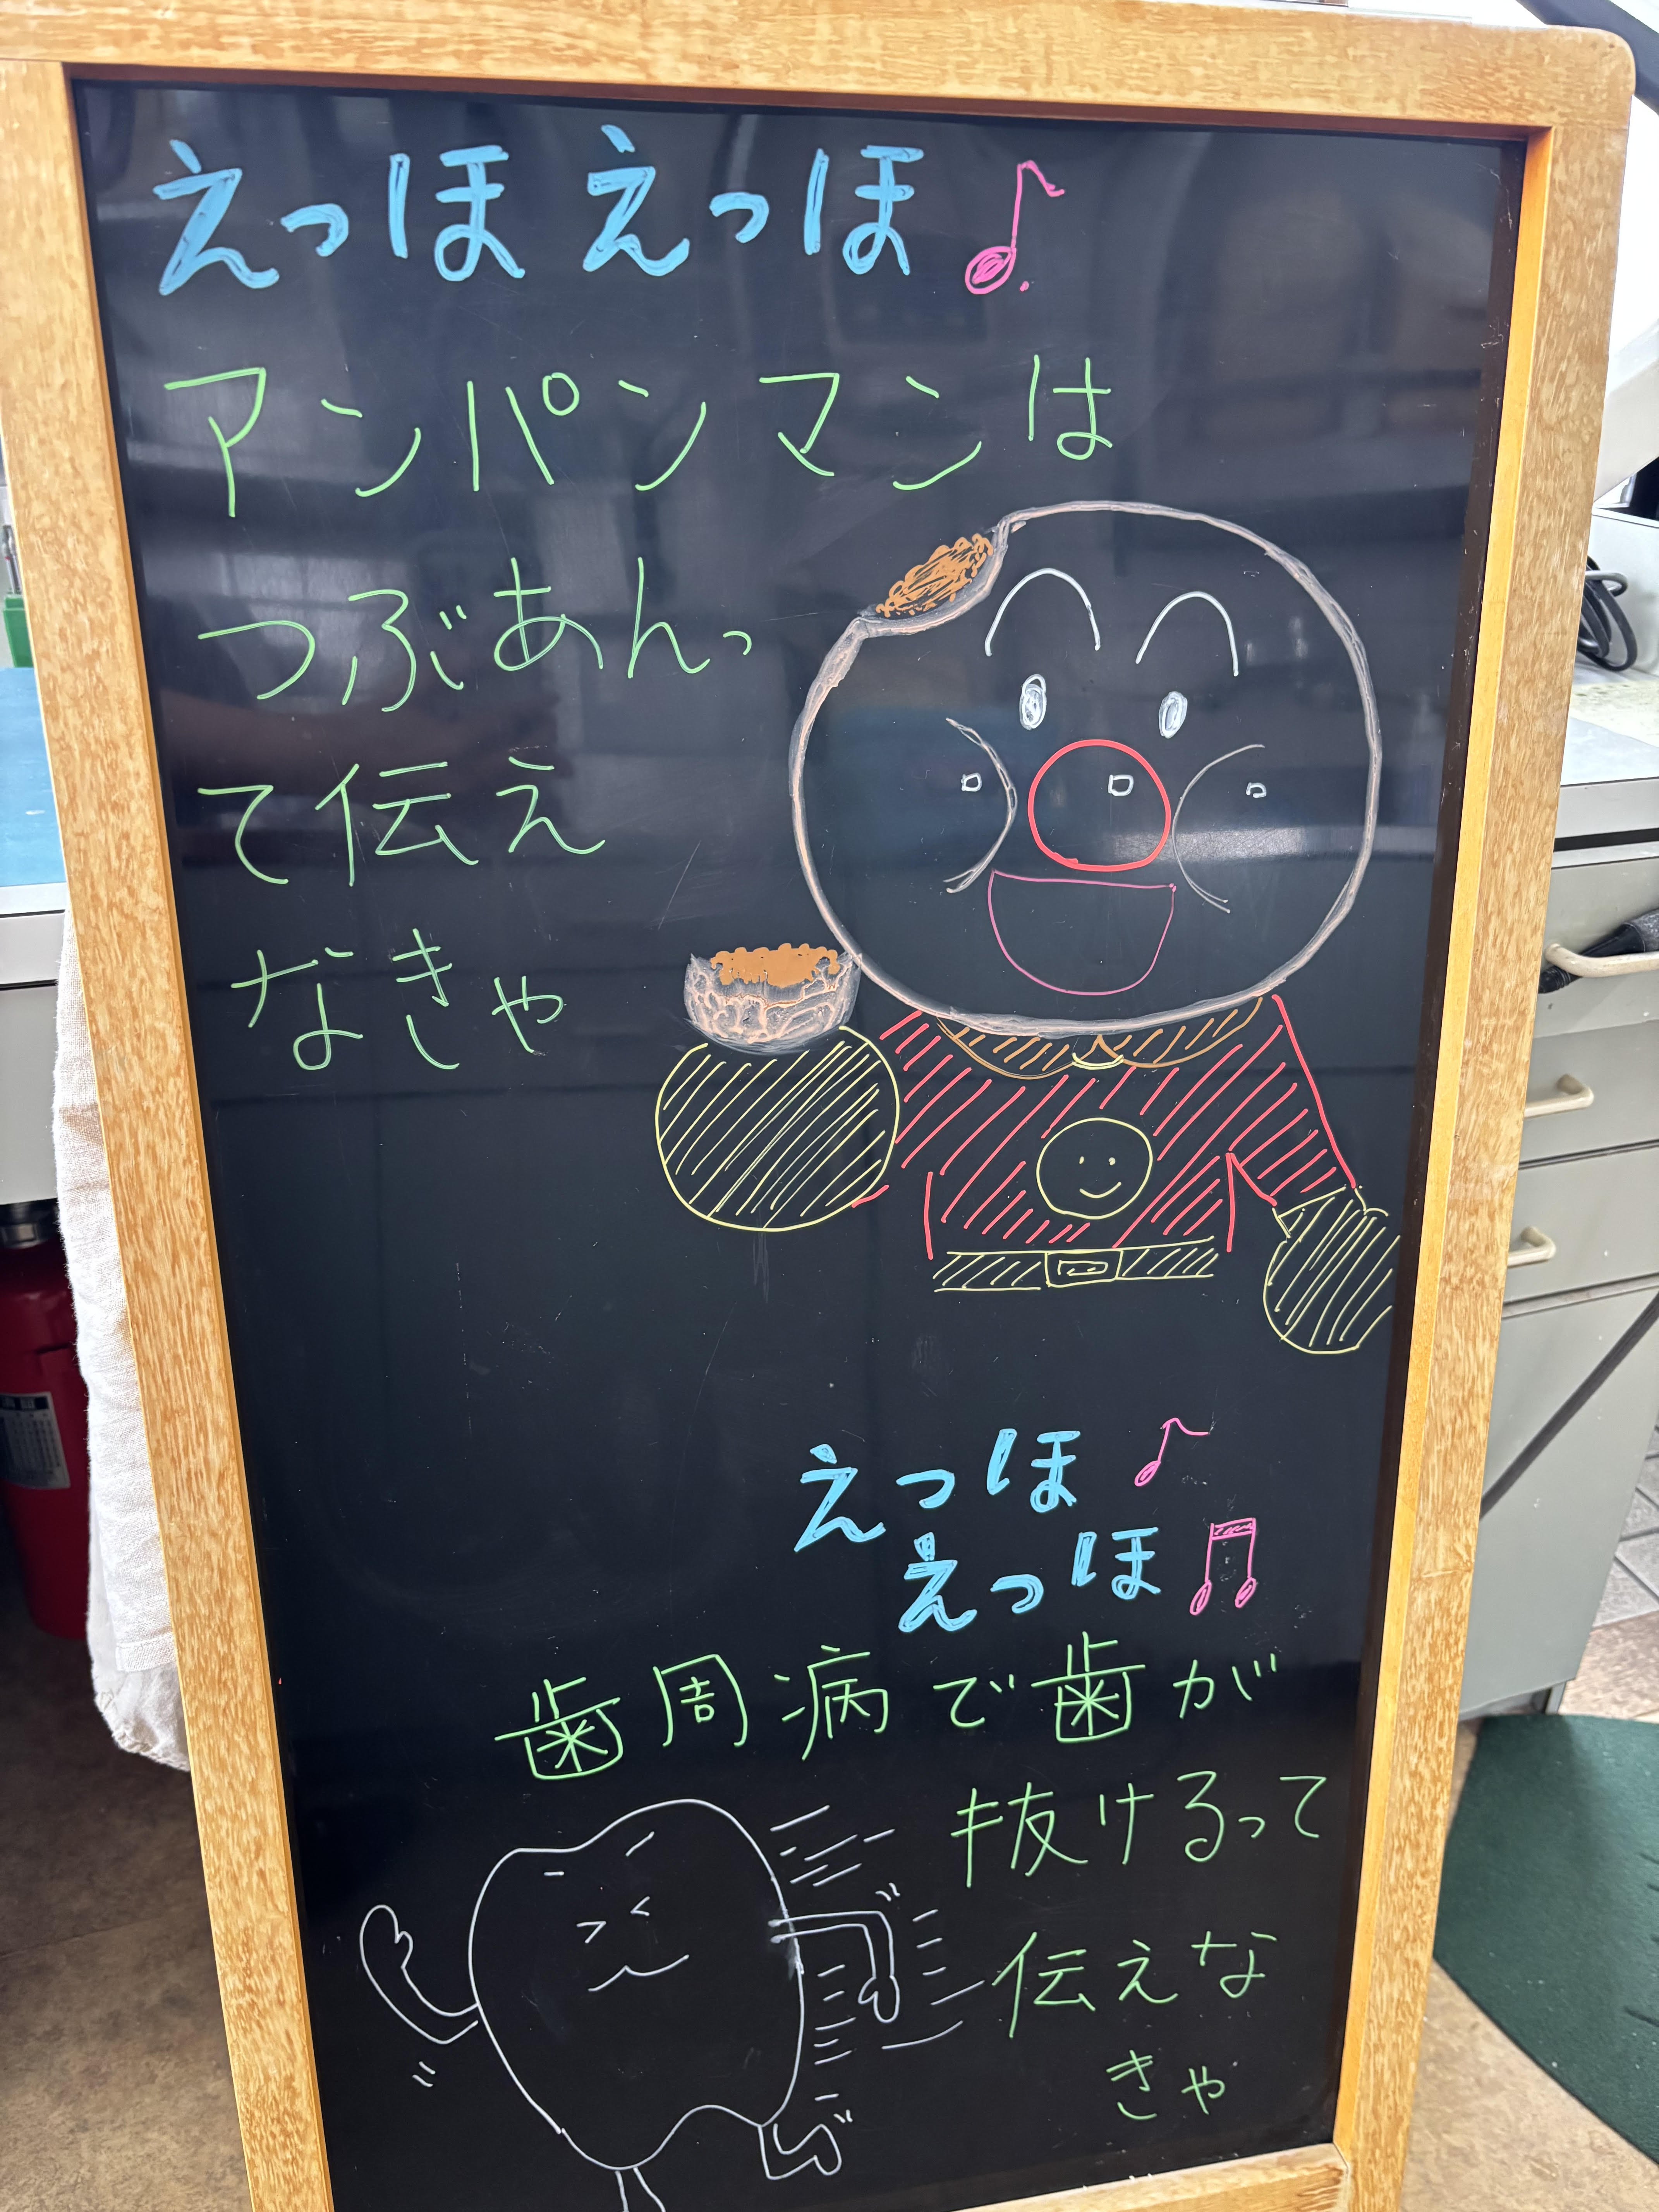 えっほ えっほ♪
アンパンマンは
つぶあんっ
て伝え
なきゃ
えっほ♪
えっほ♫
歯周病で歯が
抜けるって
伝えな
きゃ